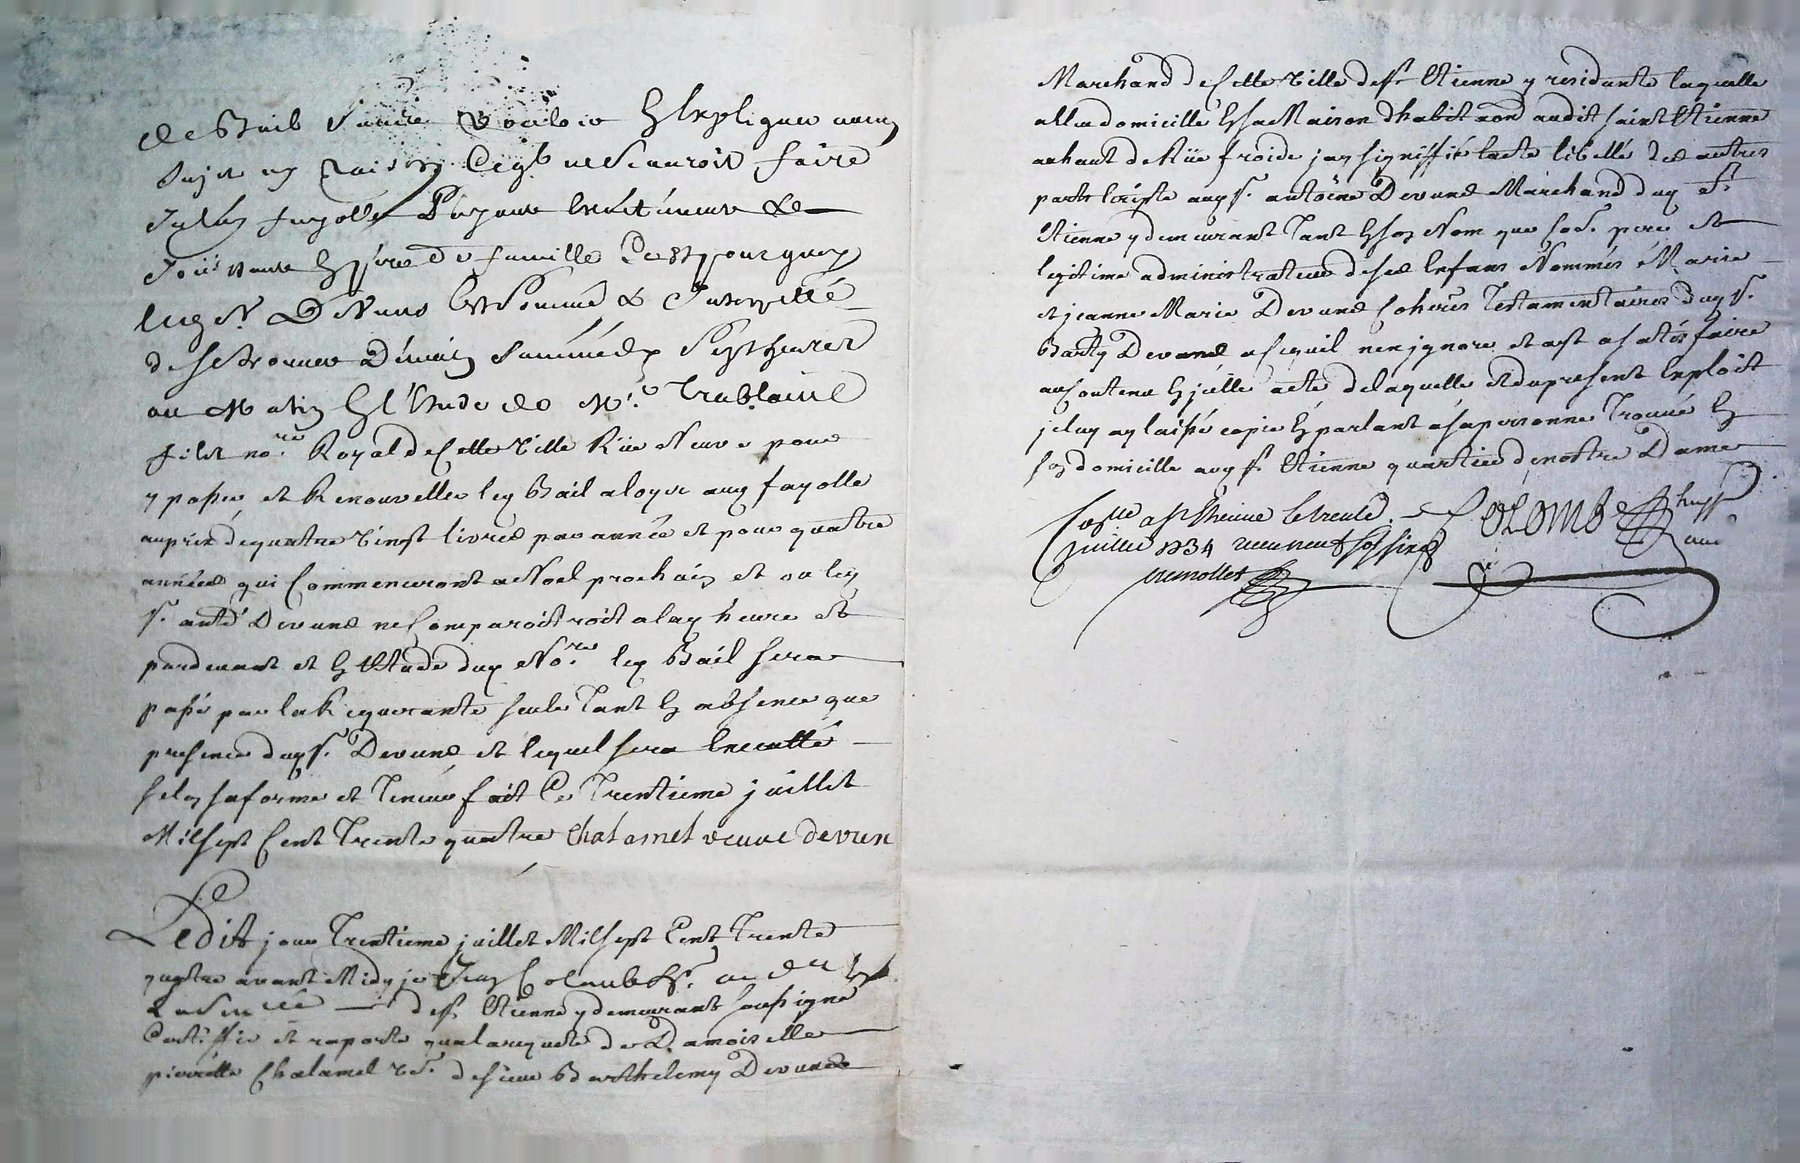 de Bail sans Vouloir Expliquer aucun
sujet ny Raison Ce qu'il ne scauroit faire
led. fayolle Payant Exactement &
Joüissant En pere de famille C'est pourquoy
led. sr. Devune Est sommé & Interpellé
de se trouver Demain sur les Sept heures
au Matin En l'Etude de Me. Trablaine
fils nore. Royal de Cette Ville Rüe Neuve pour
y passer et Renouveller led. Bail a loyer aud. fayolle
au prix de quatre vingt livres par année et pour quatre
années qui Commenceront a Noel prochain et ou led.
sr. ante. Devune ne Comparoitroit a lad. heure et
pardevant et En Etude dud. Nore. led. Bail sera
passé par la Requerante seule Tant En absence que
presence dud. sr. Devune et lequel sera Executté
selon sa forme et Teneur fait Ce Trentieme juillet
Mil sept Cent Trente quatre Chalamel veuve devun
Ledit jour Trentieme juillet Mil sept Cent Trente
quatre avant Midy je Colomb
de st. Etienne y demeurant soussigné
Certiffie et raporte qu'a la requete de Damoiselle
pierrette Chalamel ve. de sieur Barthelemy Devune
Marchand de Cette Ville de st. Etienne y residante laquelle
a Elu domicille En sa Maison d'habitaon audit saint Etienne
au haut de Rüe froide jay signiffié l'acte libellé des autres
parts Ecripte aud. sr. antoine Devune Marchand dud. st.
Etienne y demeurant Tant En son Nom que Comme pere et
legitime administrateur de ses Enfans Nommés Marie
et jeanne Marie Devune Coherers Testamentaires dud. sr.
Barthy Devune a ce qu'il n'en jgnore et ast a satisfaire
au Contenu En jcelle acte de laquelle et du present Exploit
je luy ay laissé copie En parlant a sa personne Trouvé En
son domicille aud. st. Etienne quartier de nostre Dame
COLOMB huyss
Conlle. a st. Etienne le trente
juillet 1734 receu neuf sols six d
tremollet